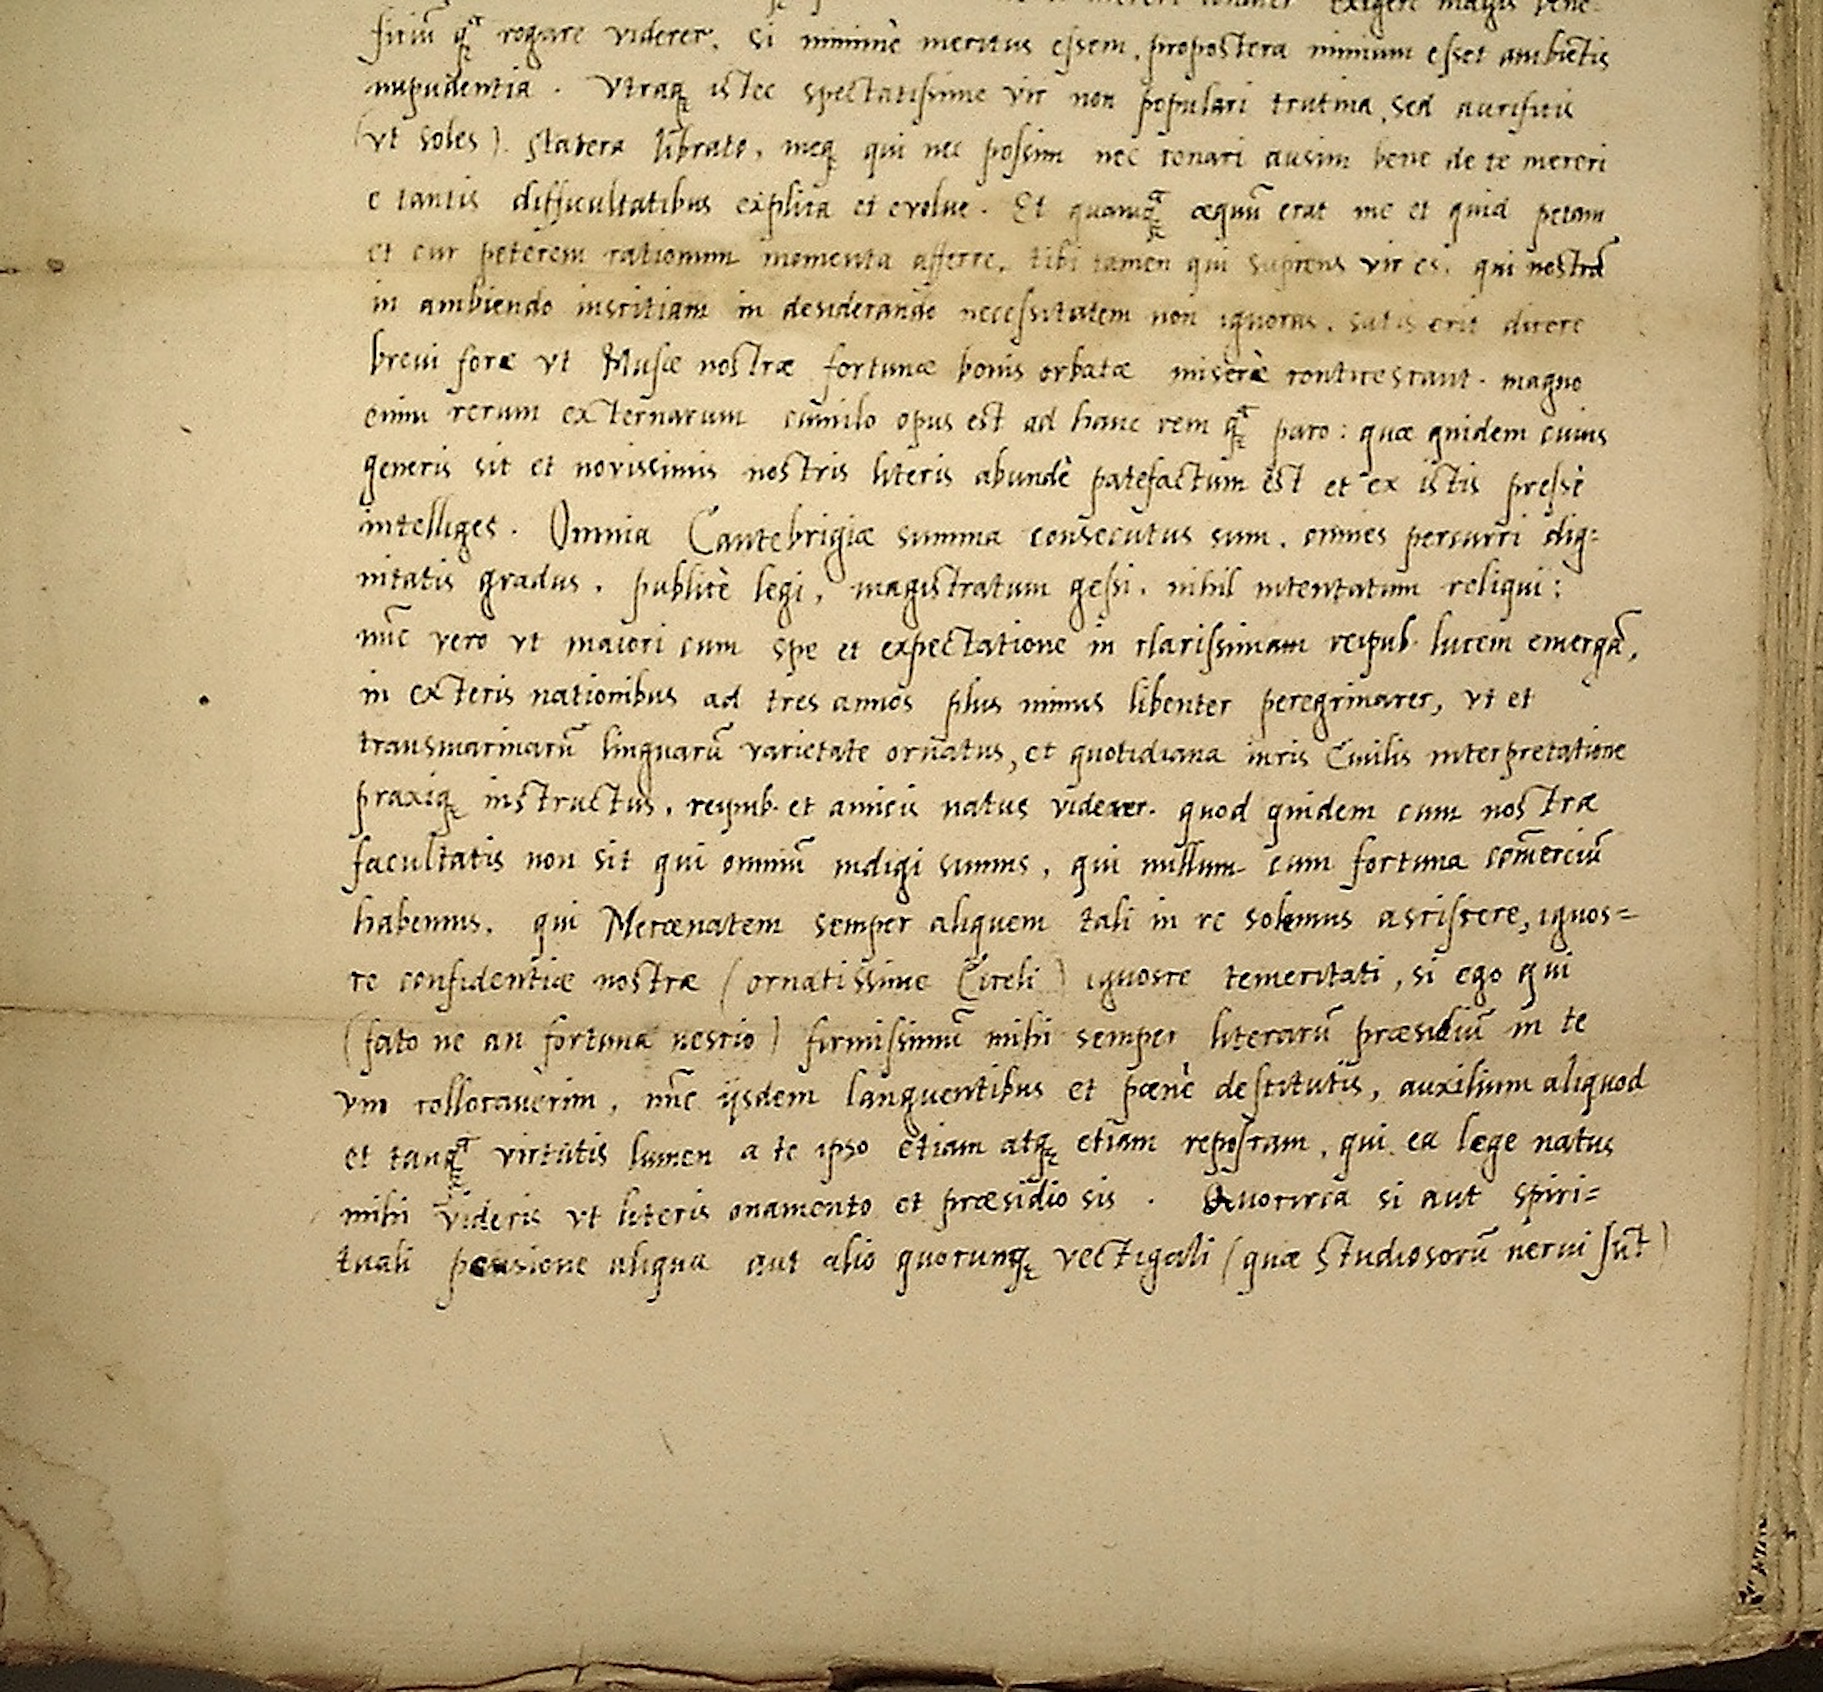 exigere magis bene-
ficiū q̃ rogare viderer. Si minimè meritus essem, propostera nimium esset ambiētis
impudentia. Vtraq; istec spectatissime vir non populari trutina, sed aurificis
(vt soles) statera librato, meq; qui nec possim nec conari ausim bene de te mereri
e tantis difficultatibus explica et evolue. Et quamq̃ æquū erat me et quid petam
et cur peterem rationum momenta afferre, tibi tamen qui sapiens vir es, qui nostrā
in ambiendo inscitiam in desiderando necessitatem non ignoras, satis erit dicere
breui fore vt Musæ nostræ fortunæ bonis orbatæ miserè conticescant. magno
enim rerum externarum cumulo opus est ad hanc rem q̃ paro: quæ quidem cuius
generis sit et novissimis nostris literis abundè patefactum est et ex istis pressè
intelliges. Omnia Cantebrigiæ summa consecutus sum, omnes percurri dig=
nitatis gradus, publicè legi, magistratum gessi, nihil intentatum reliqui:
nūc vero vt maiori cum spe et expectatione in clarissimam reipub. lucem emergā,
in exteris nationibus ad tres annos plus minus libenter peregrinarer, vt et
transmarinarū linguarū varietate ornatus, et quotidiana iuris Ciuilis interpretatione
praxiq; instructus, reipub. et amicis natus viderer. quod quidem cum nostræ
facultatis non sit qui omniū indigi sumus, qui nullum cum fortuna cōmerciū
habemus, qui Mecœnatem semper aliquem tali in re solemus asciscere, ignos=
ce confidentiæ nostræ (ornatissime Ciceli) ignosce temeritati, si ego qui
(fato ne an fortuna nescio) firmissimū mihi semper literarū præsidiū in te
vno collocauerim, nūc ijsdem languentibus et pœnè destitutis, auxilium aliquod
et tanq̃ virtutis lumen a te ipso etiam atq; etiam reposcam, qui ea lege natus
mihi videris vt literis onamento et præsidio sis. Quocirca si aut spiri=
tuali pensione aliqua aut alio quocunq; vectigali (quæ studiosorū nerui sūt)